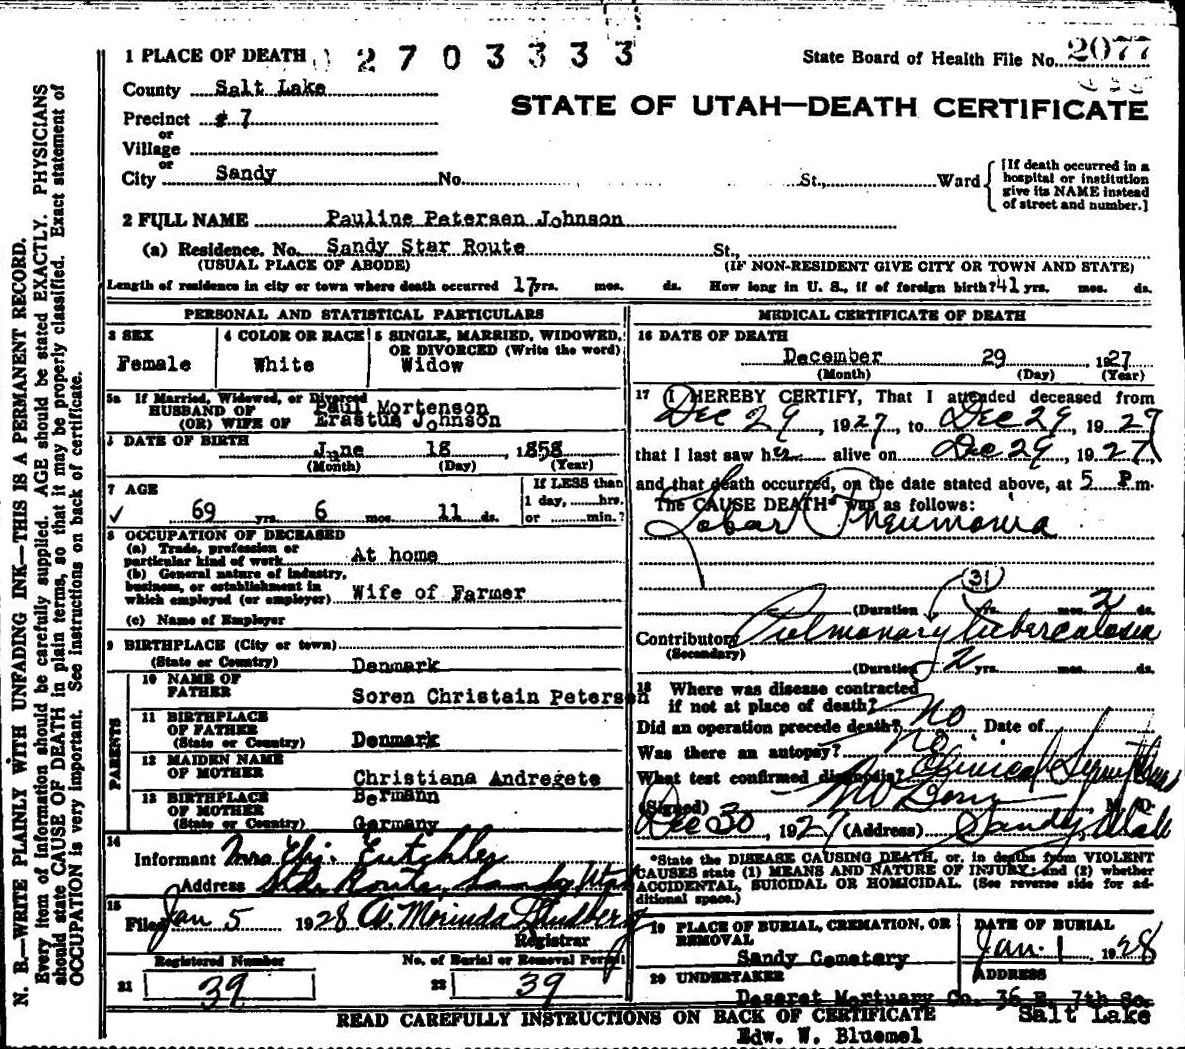 1 PLACE OF DEATH 2703333
State Board of Health File No. 2077
County Salt Lake
STATE OF UTAH—DEATH CERTIFICATE
Precinct # 7
or
Village
or
City Sandy No. St., Ward
[If death occurred in a
hospital or institution
give its NAME instead
of street and number.]
2 FULL NAME Pauline Petersen Johnson
(a) Residence. No. Sandy Star Route St.,
(USUAL PLACE OF ABODE) (IF NON-RESIDENT GIVE CITY OR TOWN AND STATE)
Length of residence in city or town where death occurred 17 yrs. mos. ds. How long in U. S., if of foreign birth? 41 yrs. mos. ds.
PERSONAL AND STATISTICAL PARTICULARS
3 SEX 4 COLOR OR RACE 5 SINGLE, MARRIED, WIDOWED,
OR DIVORCED (Write the word)
Female White Widow
5a If Married, Widowed, or Divorced
HUSBAND OF Paul Mortenson
(OR) WIFE OF Erastus Johnson
DATE OF BIRTH
June 18, 1858
(Month) (Day) (Year)
7 AGE If LESS than
1 day, hrs.
69 yrs. 6 mos. 11 ds. or min.?
8 OCCUPATION OF DECEASED
(a) Trade, profession or
particular kind of work At home
(b) General nature of industry,
business, or establishment in
which employed (or employer) Wife of Farmer
(c) Name of Employer
9 BIRTHPLACE (City or town)
(State or Country) Denmark
PARENTS
10 NAME OF
FATHER Soren Christain Petersen
11 BIRTHPLACE
OF FATHER
(State or Country) Denmark
12 MAIDEN NAME
OF MOTHER Christiana Andregete
13 BIRTHPLACE Bermann
OF MOTHER
(State or Country) Germany
14
Informant Mrs
Address Star Route, Sandy Utah
15
Filed Jan 5 1928 Morinda Lundberg
Registrar
Registered Number No. of Burial or Removal Permit
21 39 22 39
MEDICAL CERTIFICATE OF DEATH
16 DATE OF DEATH
December 29 1927
(Month) (Day) (Year)
17 I HEREBY CERTIFY, That I attended deceased from
Dec 29, 1927, to Dec 29, 1927
that I last saw her alive on Dec 29, 1927,
and that death occurred, on the date stated above, at 5 P m.
The CAUSE DEATH* was as follows:
Lobar Pneumonia
(31)
(Duration yrs. mos. 2 ds.
Contributory Pulmonary Tuberculosis
(Secondary)
(Duration) 2 yrs. mos. ds.
18 Where was disease contracted
if not at place of death?
Did an operation precede death? no Date of
Was there an autopsy? no
What test confirmed diagnosis? Clinical Symptoms
(Signed) M. D.
Dec 30, 1927 (Address) Sandy, Utah
*State the DISEASE CAUSING DEATH, or, in deaths from VIOLENT
CAUSES state (1) MEANS AND NATURE OF INJURY; and (2) whether
ACCIDENTAL, SUICIDAL OR HOMICIDAL. (See reverse side for ad-
ditional space.)
19 PLACE OF BURIAL, CREMATION, OR
REMOVAL
Sandy Cemetery
DATE OF BURIAL
Jan. 1 1928
20 UNDERTAKER ADDRESS
Deseret Mortuary Co. 36 E. 7th So.
Salt Lake
READ CAREFULLY INSTRUCTIONS ON BACK OF CERTIFICATE
Edw. W. Bluemel
N. B.—WRITE PLAINLY WITH UNFADING INK—THIS IS A PERMANENT RECORD.
Every item of information should be carefully supplied. AGE should be stated EXACTLY. PHYSICIANS
should state CAUSE OF DEATH in plain terms, so that it may be properly classified. Exact statement of
OCCUPATION is very important. See instructions on back of certificate.